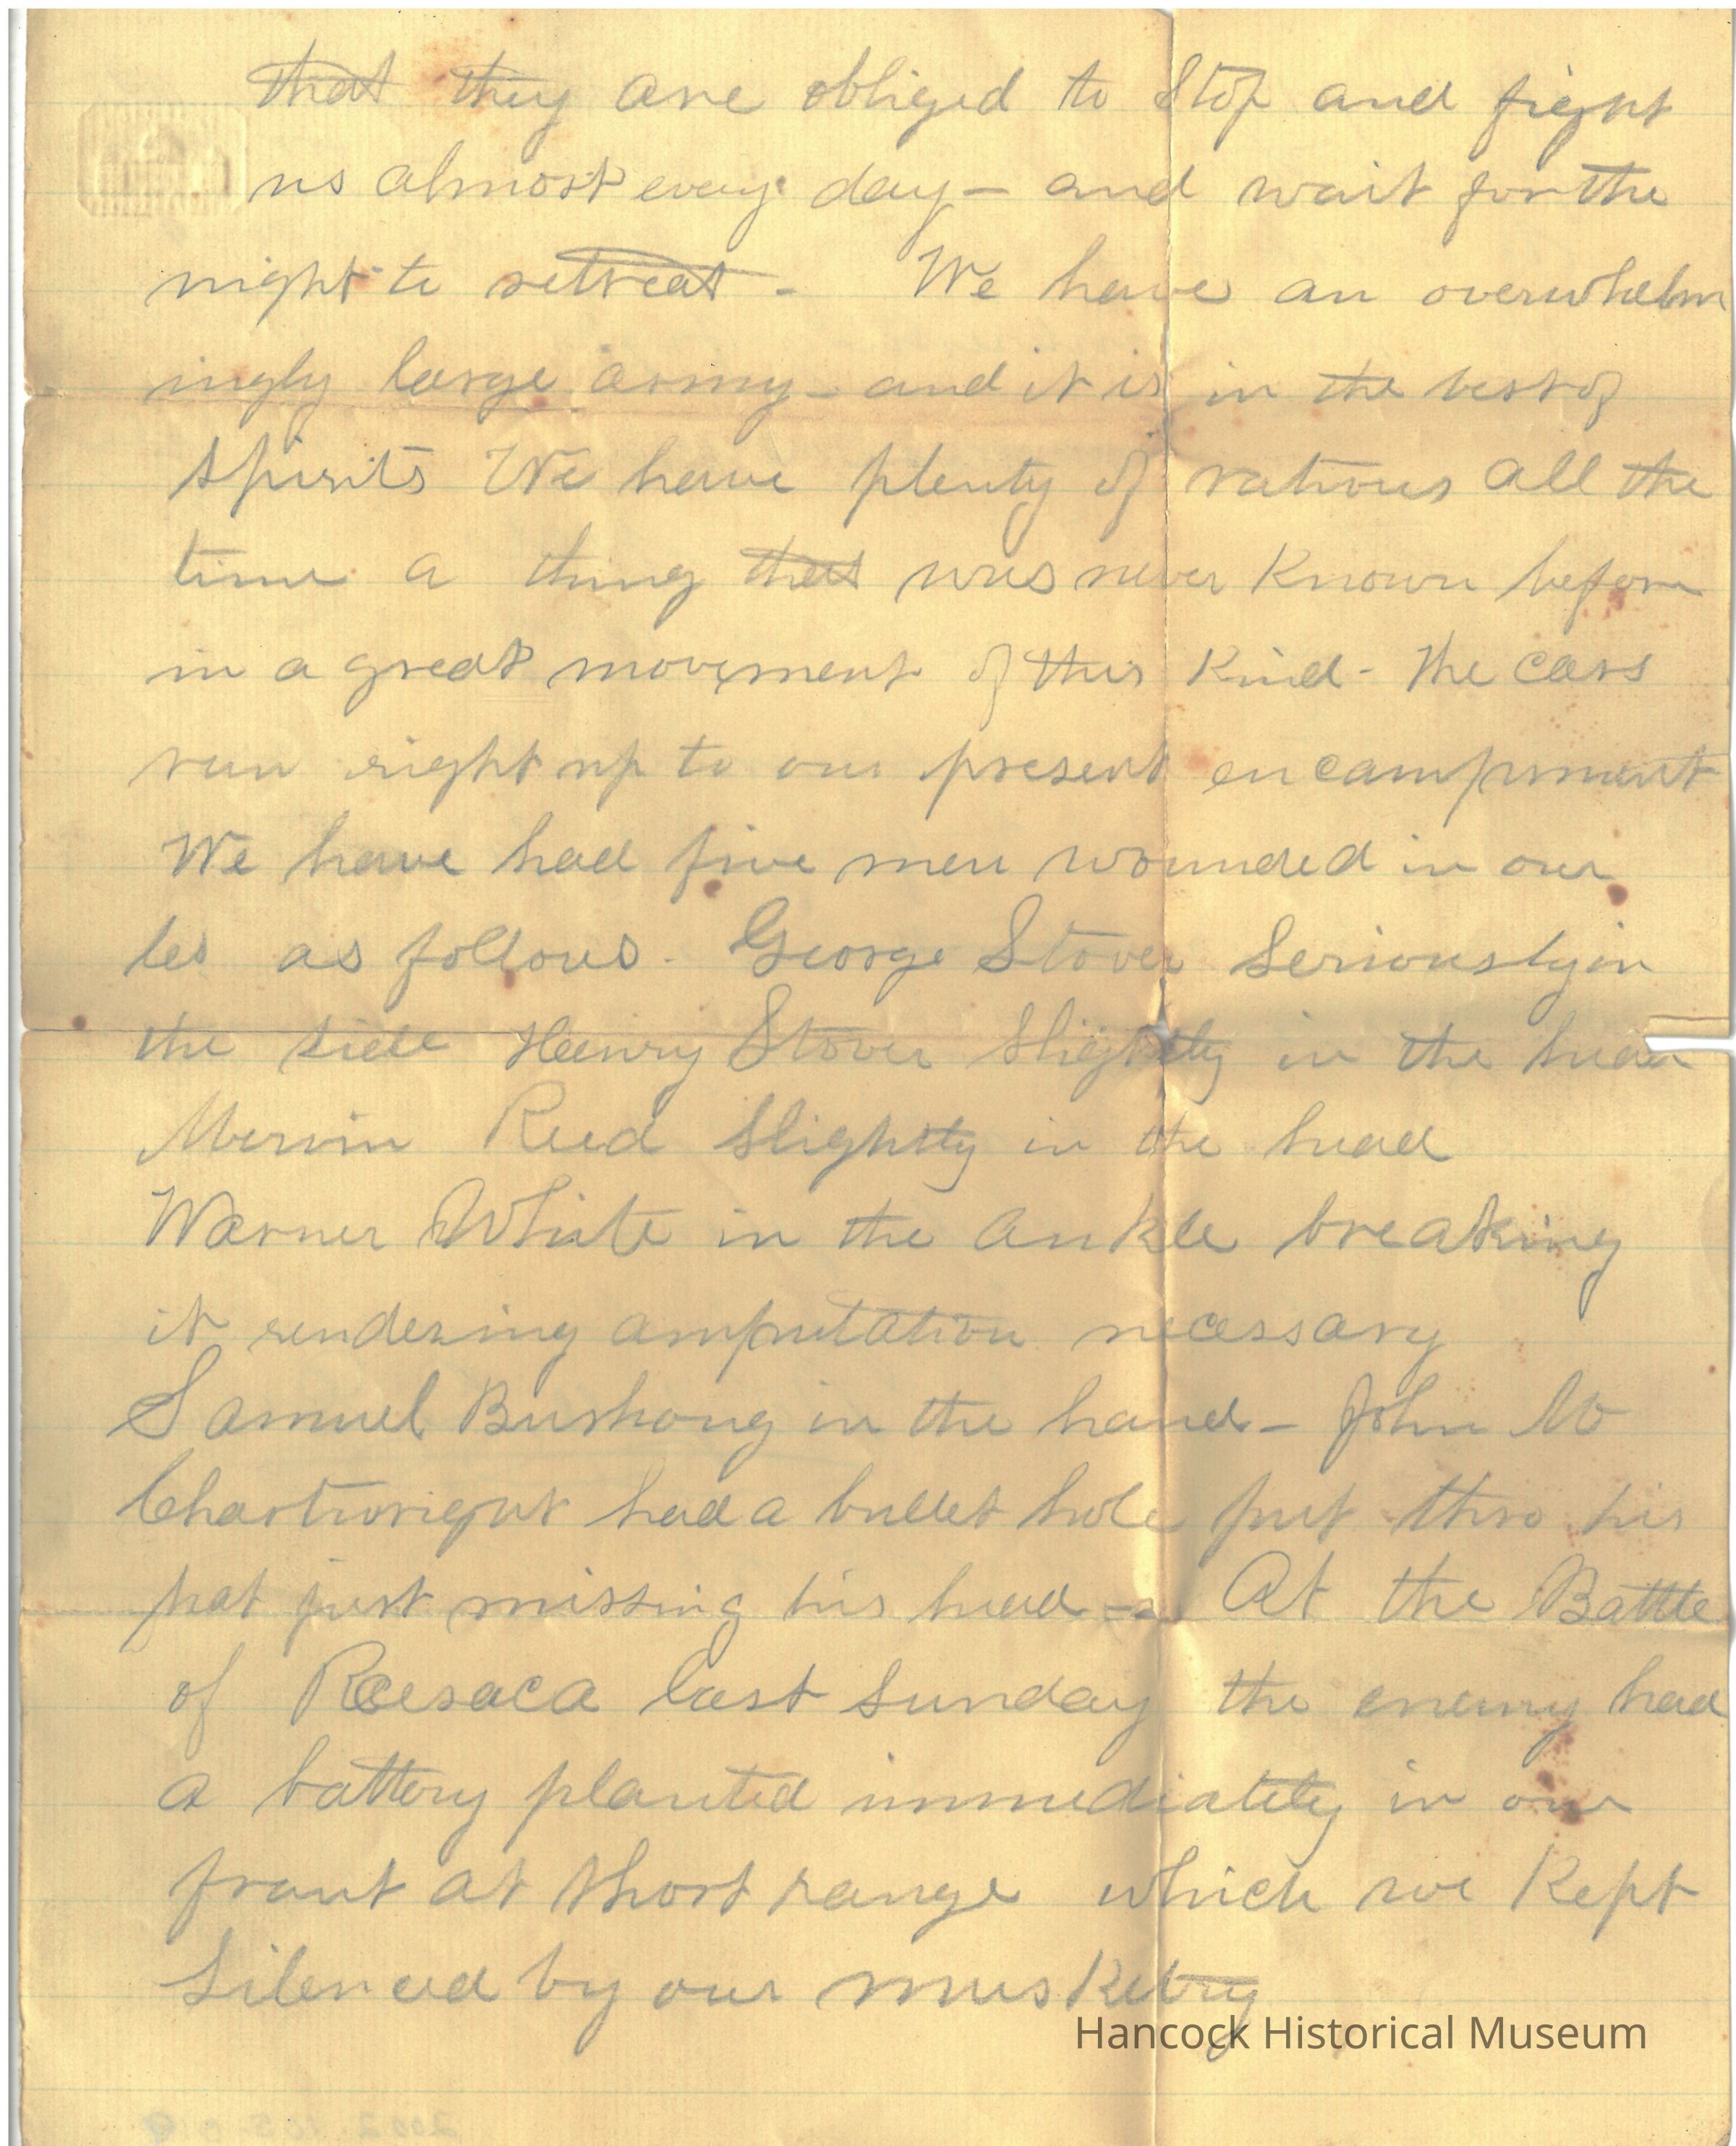 that they are obliged to stop and fight
us almost every day - and wait for the
night to retreat - We have an overwhelm
ingly large army - and it is in the best of
spirits We have plenty of rations all the
time a thing that was never known before
in a great movement of this kind - The cars
run right up to our present encampment
We have had five men wounded in our
Co as follows - George Stover Seriously in
the side Henry Stover Slightly in the head
Mervin Reed Slightly in the head
Warner White in the ankle breaking
it rendering amputation necessary
Samuel Bushong in the hand - John W
Chartwright had a bullet hole put thro his
hat just missing his head - At the Battle
of Reesaca last Sunday the enemy had
a battery planted immediately in our
front at short range which we kept
Silenced by our musketry
Hancock Historical Museum